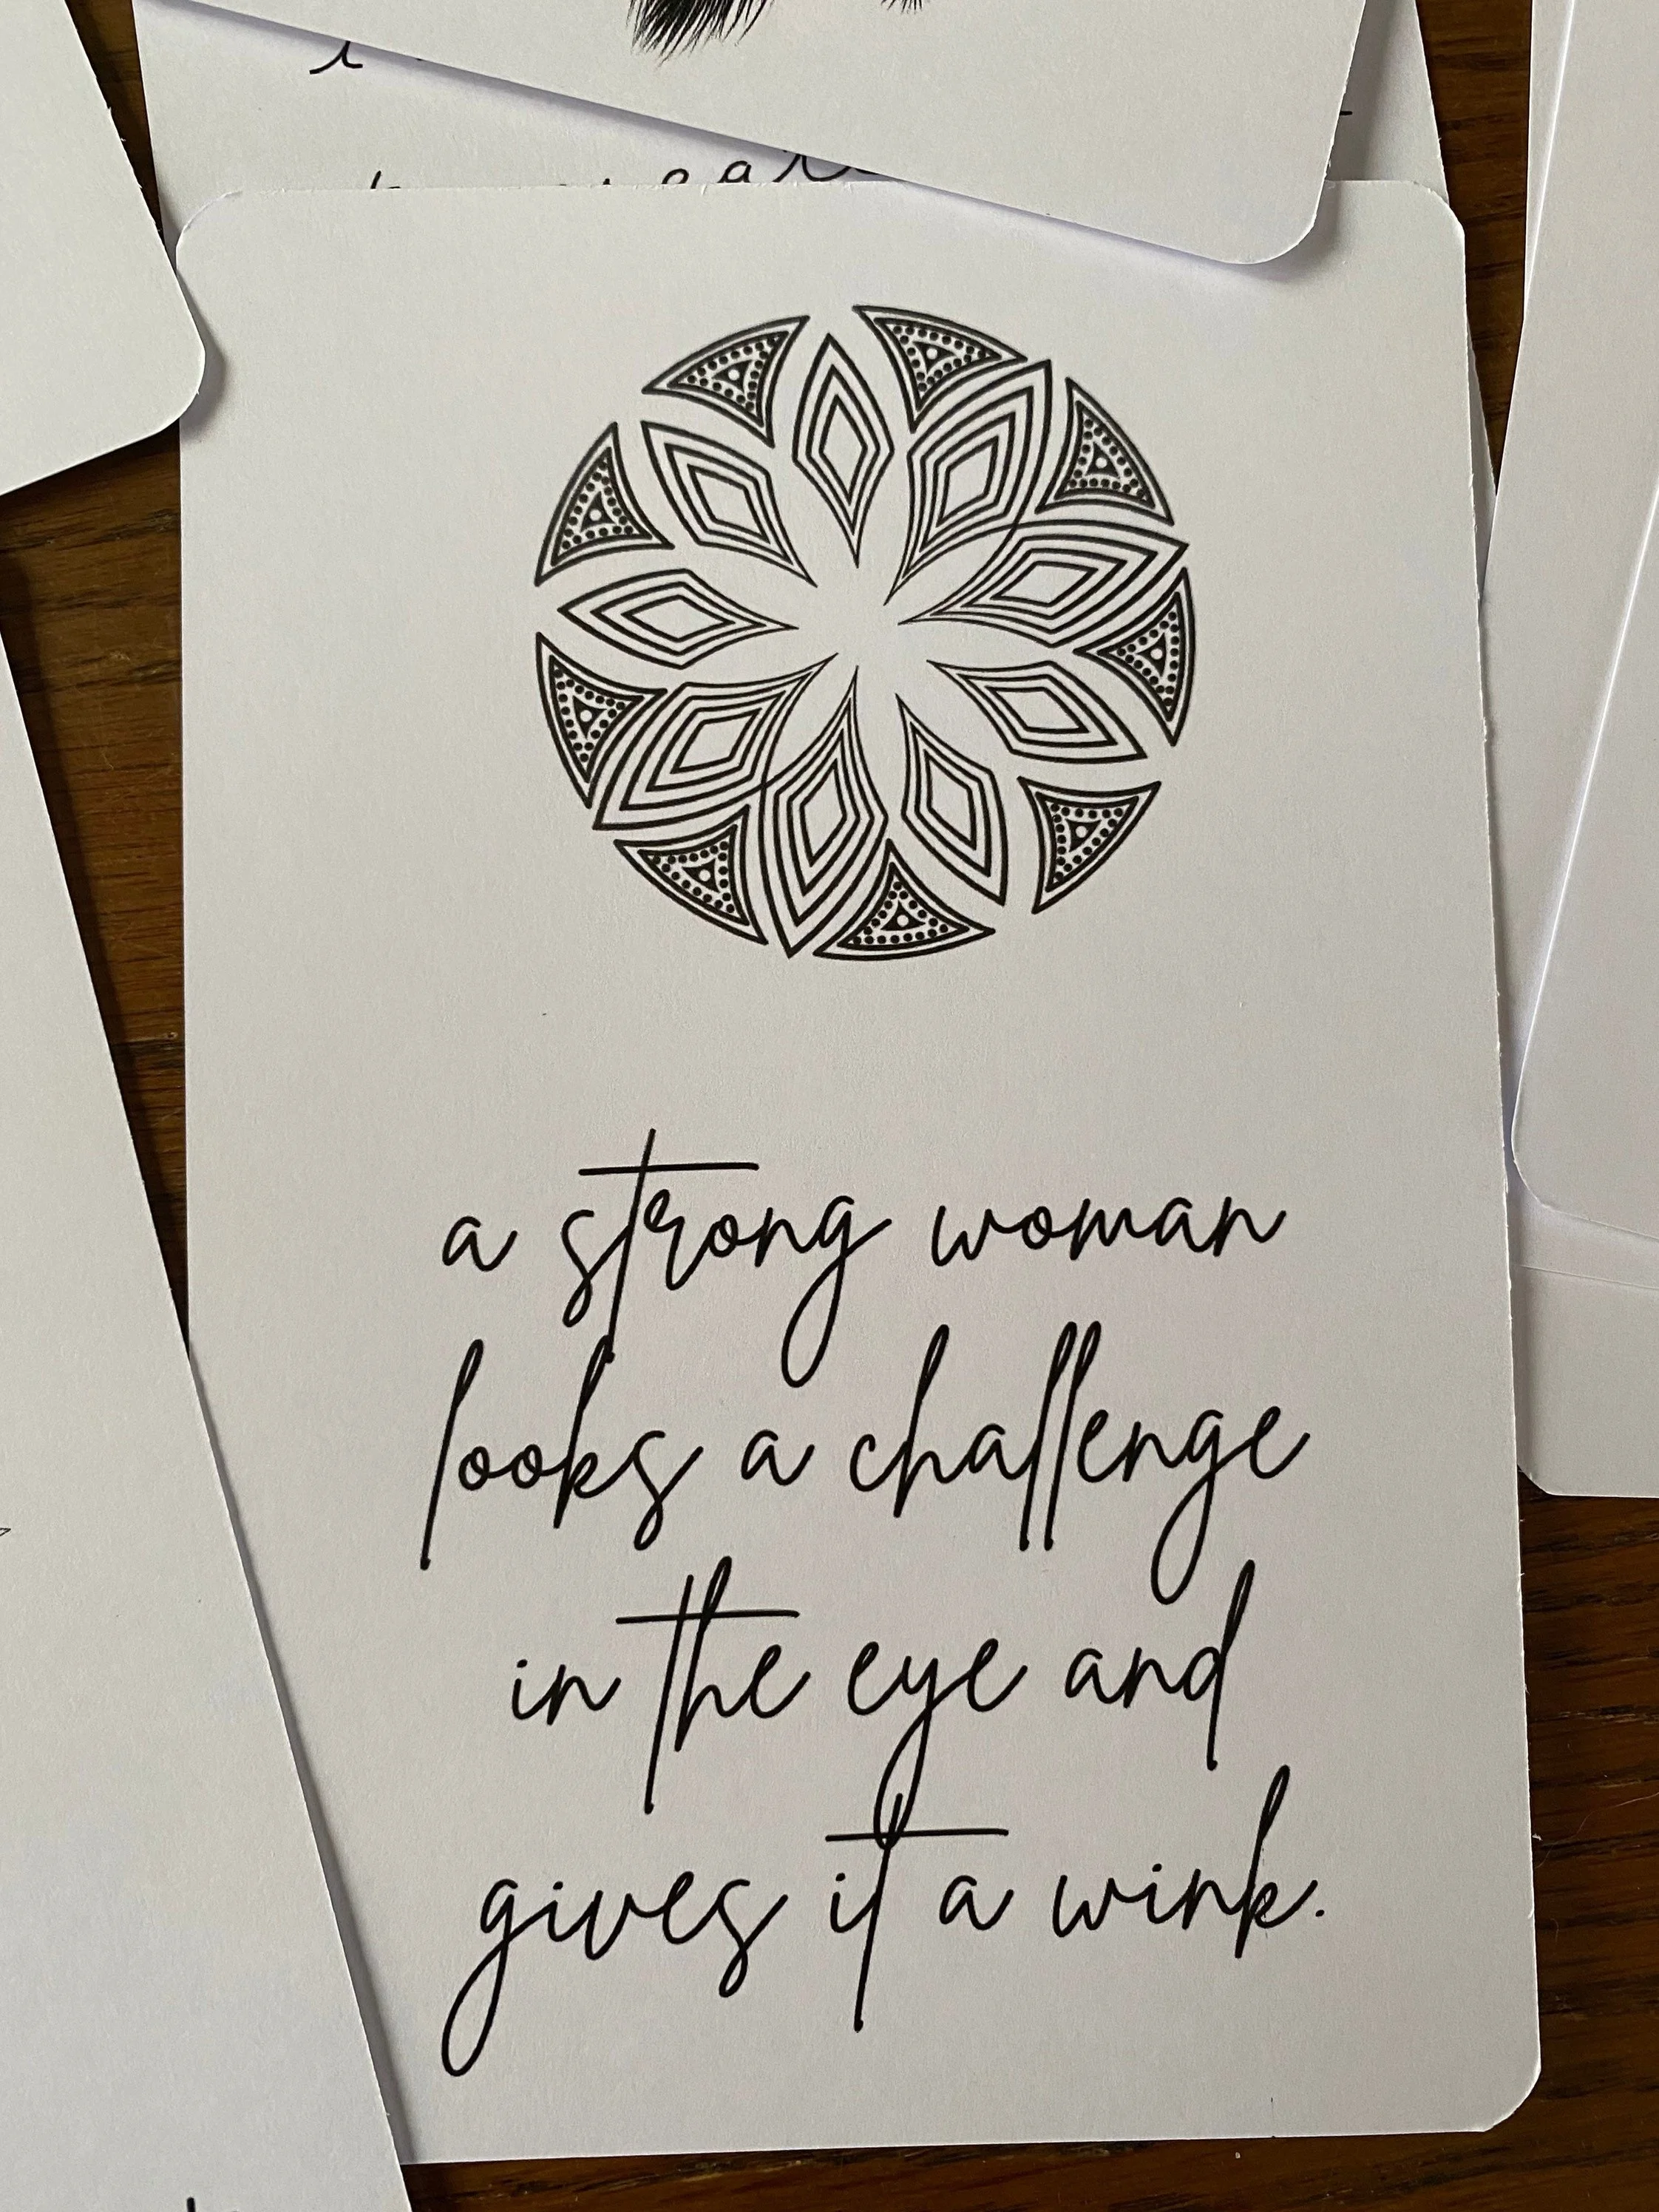 a strong woman
looks a challenge
in the eye and
gives it a wink.